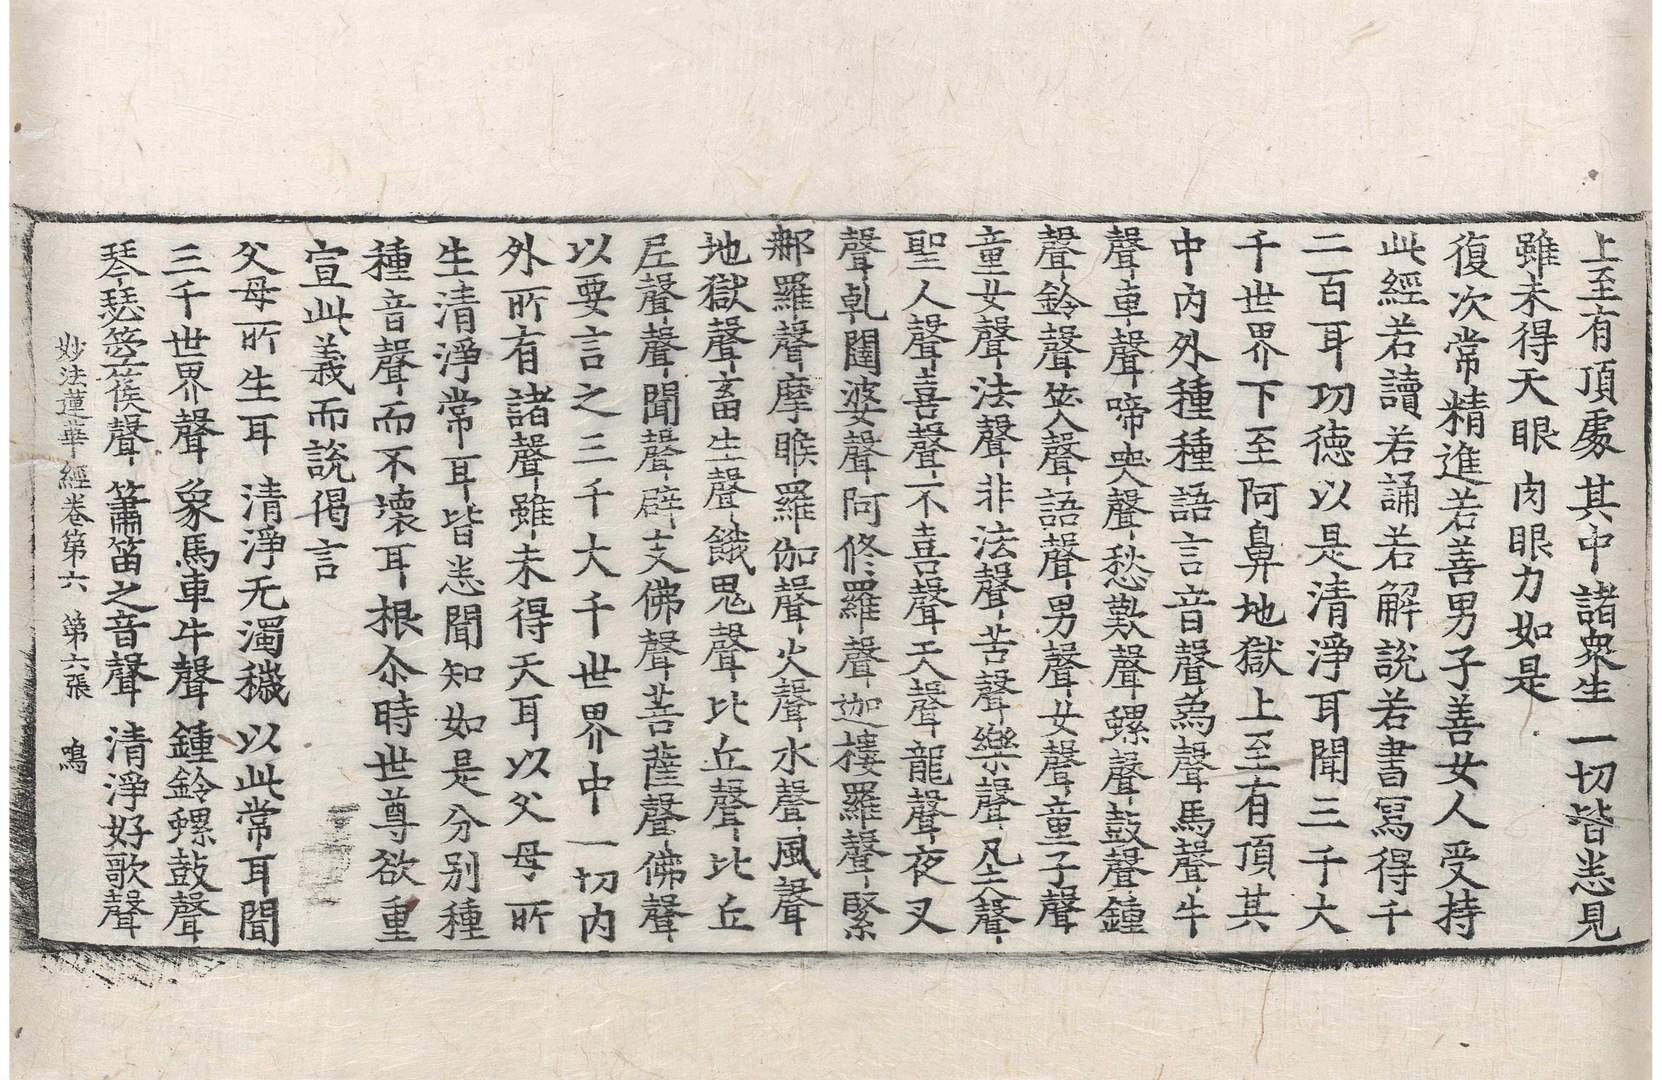 上至有頂處 其中諸衆生 一切皆悉見
雖未得天眼 肉眼力如是
復次常精進若善男子善女人受持
此經若讀若誦若解說若書寫得千
二百耳功德以是清淨耳聞三千大
千世界下至阿鼻地獄上至有頂其
中內外種種語言音聲爲聲馬聲牛
聲車聲啼哭聲愁歎聲螺聲鼓聲鍾
聲鈴聲笑聲語聲男聲女聲童子聲
童女聲法聲非法聲苦聲樂聲凡夫聲
聖人聲喜聲不喜聲天聲龍聲夜叉
聲乹闥婆聲阿修羅聲迦樓羅聲緊
那羅聲摩睺羅伽聲火聲水聲風聲
地獄聲畜生聲餓鬼聲比丘聲比丘
尼聲聲聞聲辟支佛聲菩薩聲佛聲
以要言之三千大千世界中一切內
外所有諸聲雖未得天耳以父母所
生清淨常耳皆悉聞知如是分別種
種音聲而不壞耳根尒時世尊欲重
宣此義而說偈言
父母所生耳 清淨无濁穢 以此常耳聞
三千世界聲 象馬車牛聲 鍾鈴螺鼓聲
琴瑟箜篌聲 簫笛之音聲 清淨好歌聲
妙法蓮華經卷第六 第六張 鳴